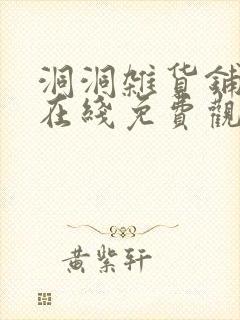 洞洞雜貨鋪
在綫免費觀
黃紫軒